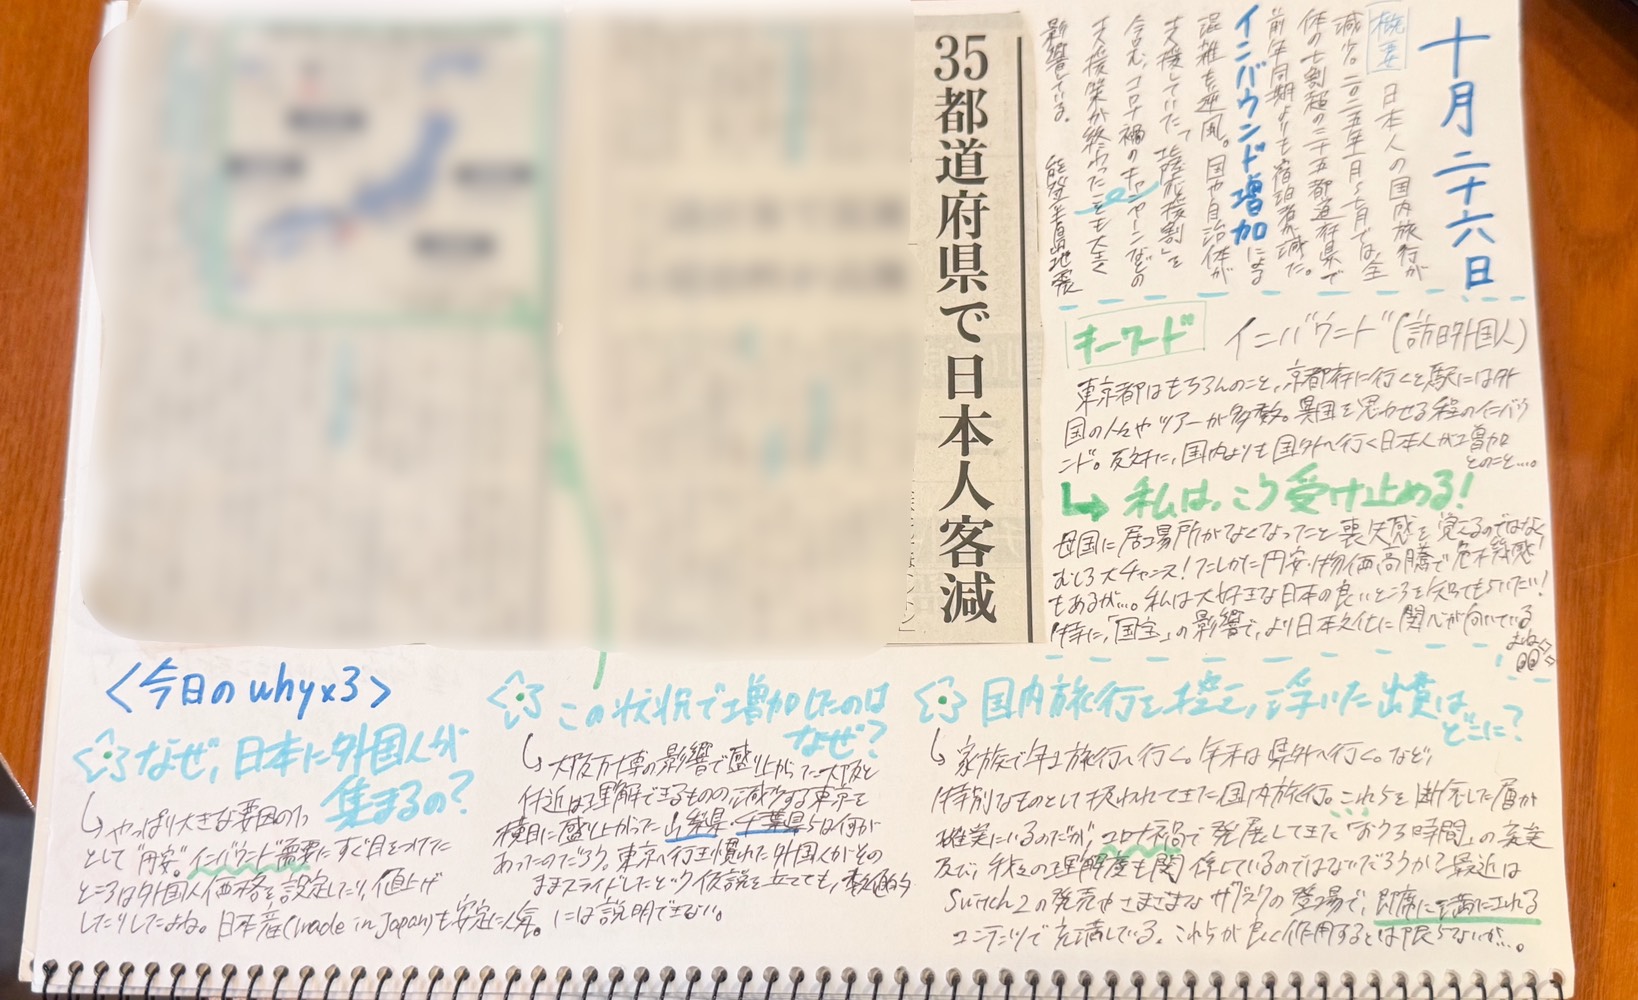 十月二十六日
概要 日本人の国内旅行が
減少。二〇二五年一月〜七月では、全
体の七割超の三十五都道府県で
前年同期よりも宿泊者が減った。
インバウンド増加による
混雑も逆風。国や自治体が
支援していた「北陸応援割」を
含む、コロナ禍のキャンペーンなどの
支援策が終わったことも大きく
影響している。 能登半島地震
35都道府県で日本人客減
キーワード インバウンド(訪日外国人)
東京都はもちろんのこと、京都府に行くと駅には外
国の人々やツアーが多数。異国を思わせる程のインバウ
ンド。反対に、国内よりも国外へ行く日本人が増加
とのこと…。
↳ 私は、こう受け止める!
母国に居場所がなくなったこと喪失感を覚えるのではなく、
むしろ大チャンス!たしかに円安・物価高騰で危機感
もあるが…。私は大好きな日本の良いところを知ってもらいたい!
特に、「国宝」の影響で、より日本文化に関心が向いている
まぬ
<今日のwhy×3>
なぜ、日本に外国人が
集まるの?
↳やっぱり大きな要因の1つ
として"円安"。インバウンド需要にすぐ目をつけた
ところは外国人価格を設定したり、値上げ
したりしたよね。日本産(made in Japan)も安定に人気。
この状況で増加したのは
なぜ?
↳大阪万博の影響で盛り上がった大阪と
付近は理解できるものの、減少する東京を
横目に盛り上がった山梨県・千葉県らは何が
あったのだろう。東京へ行き慣れた外国人がその
ままスライドしたという仮説を立てても、数値的
には説明できない。
国内旅行を控え、浮いた出費は
どこに?
↳家族で年1旅行へ行く。年末は県外へ行く。など、
特別なものとして扱われてきた国内旅行。これらを断念した層が
確実にいるのだが、コロナ禍で発展してきた「おうち時間」の充実
及び、秩序の理解度も関係しているのではないだろうか?最近は
Switch2の発売やさまざまなサブスクの登場で、即席に満たされる
コンテンツで充満している。これらが良く作用するとは限らないが…。